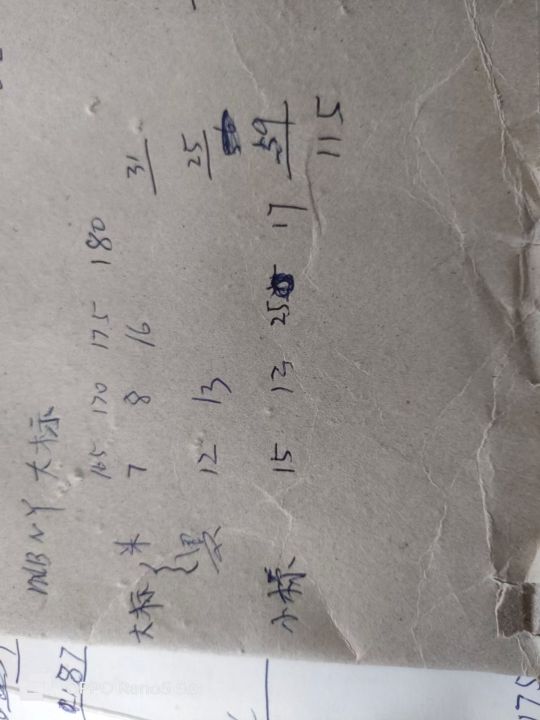 MLB NY 大标
165 170 175 180
大标 米 7 8 16 31
黑 12 13 25
小标 15 13 25 17 59
115
OPPO Reno5 5G